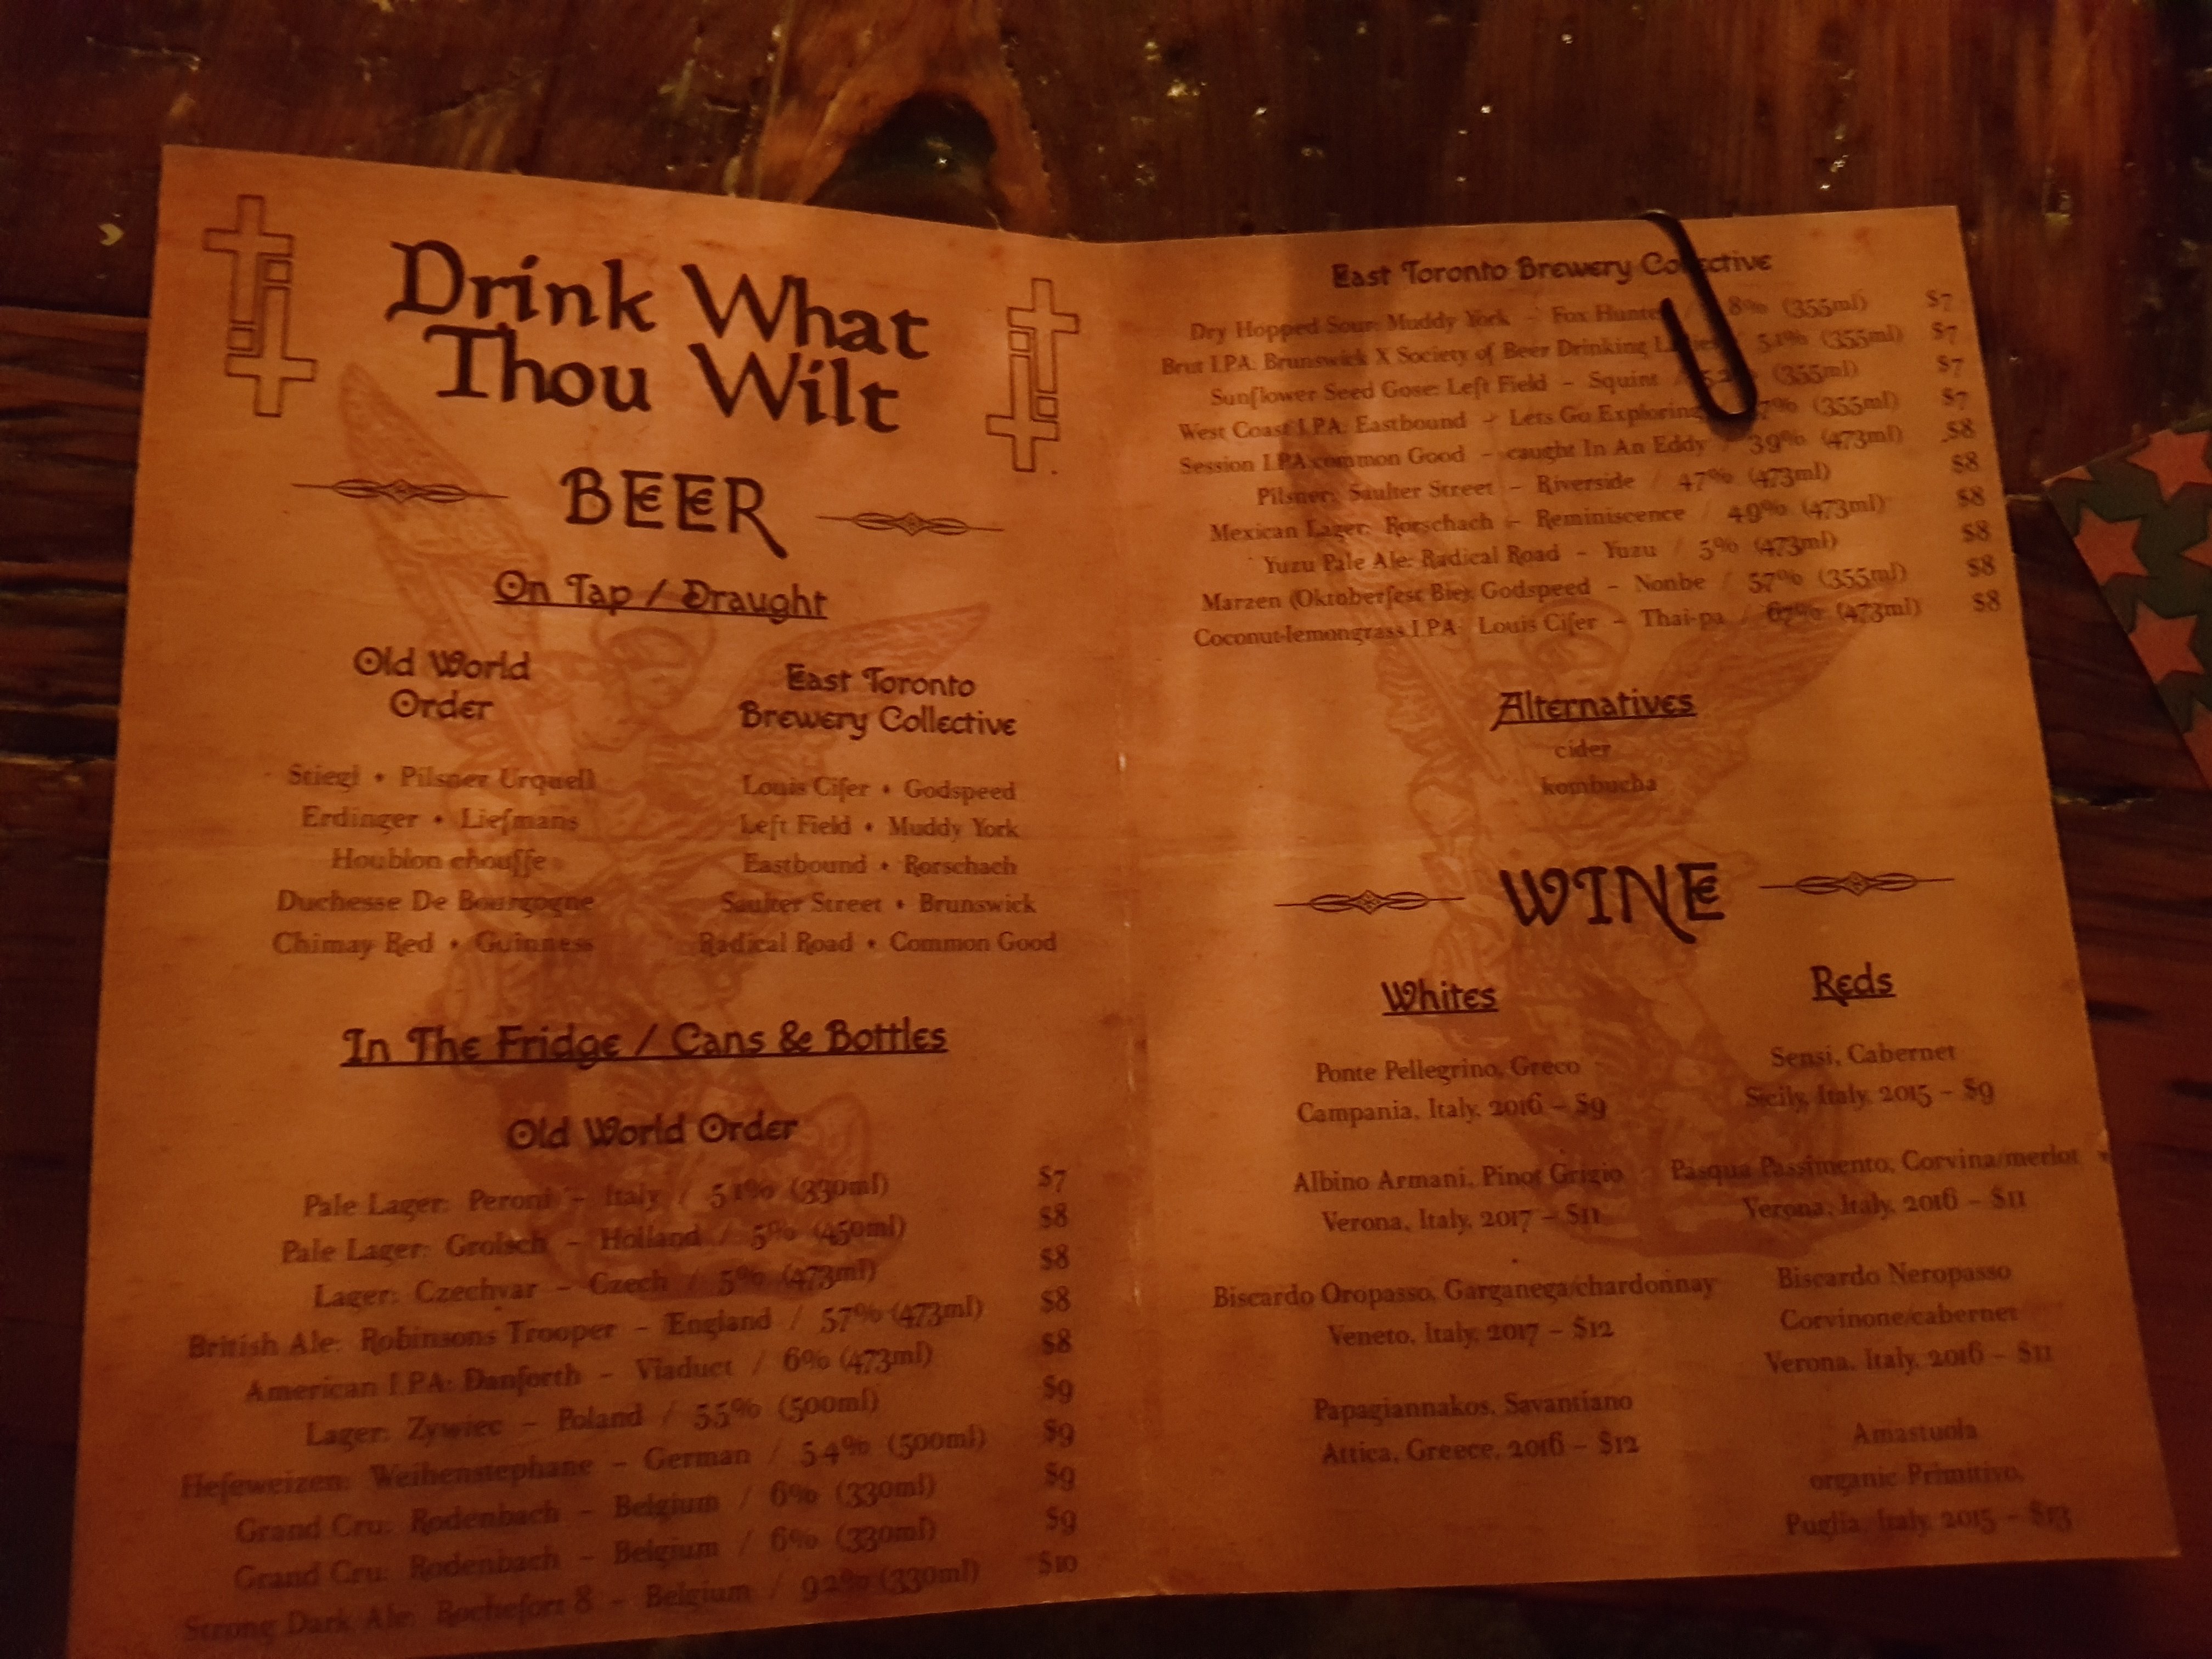 Drink What
Thou Wilt
BEER
On Tap / Draught
Old World
Order
Stiegl • Pilsner Urquell
Erdinger • Liefmans
Houblon chouffe
Duchesse De Bourgogne
Chimay Red • Guinness
East Toronto
Brewery Collective
Louis Cifer • Godspeed
Left Field • Muddy York
Eastbound • Rorschach
Saulter Street • Brunswick
Radical Road • Common Good
In The Fridge / Cans & Bottles
Old World Order
Pale Lager: Peroni – Italy / 5.1% (330ml) $7
Pale Lager: Grolsch – Holland / 5% (450ml) $8
Lager: Czechvar – Czech / 5% (473ml) $8
British Ale: Robinsons Trooper – England / 57% (473ml) $8
American I.PA: Danforth – Viaduct / 6% (473ml) $8
Lager: Zywiec – Poland / 5.5% (500ml) $9
Hefeweizen: Weihenstephane – German / 5.4% (500ml) $9
Grand Cru: Rodenbach – Belgium / 6% (330ml) $9
Grand Cru: Rodenbach – Belgium / 6% (330ml) $9
Strong Dark Ale: Rochefort 8 – Belgium / 92% (330ml) $10
East Toronto Brewery Collective
Dry Hopped Sour: Muddy York – Fox Hunte / 8% (355ml) $7
Brut I.PA: Brunswick X Society of Beer Drinking / 5.1% (355ml) $7
Sunflower Seed Gose: Left Field – Squint / (355ml) $7
West Coast I.PA: Eastbound – Lets Go Exploring 7% (355ml) $7
Session I.PA:common Good – caught In An Eddy / 39% (473ml) $8
Pilsner: Saulter Street – Riverside / 47% (473ml) $8
Mexican Lager: Rorschach – Reminiscence / 49% (473ml) $8
Yuzu Pale Ale: Radical Road – Yuzu / 5% (473ml) $8
Marzen (Oktoberfest Bie): Godspeed – Nonbe / 57% (355ml) $8
Coconut-lemongrass I.PA: Louis Cifer – Thai-pa / 67% (473ml) $8
Alternatives
cider
kombucha
WINE
Whites
Ponte Pellegrino, Greco
Campania, Italy, 2016 – $9
Albino Armani, Pinot Grigio
Verona, Italy, 2017 – $11
Biscardo Oropasso, Garganega/chardonnay
Veneto, Italy, 2017 – $12
Papagiannakos, Savantiano
Attica, Greece, 2016 – $12
Reds
Sensi, Cabernet
Sicily, Italy, 2015 – $9
Pasqua Passimento, Corvina/merlot
Verona, Italy, 2016 – $11
Biscardo Neropasso
Corvinone/cabernet
Verona, Italy, 2016 – $11
Amastuola
organic Primitivo,
Puglia, Italy, 2015 – $13